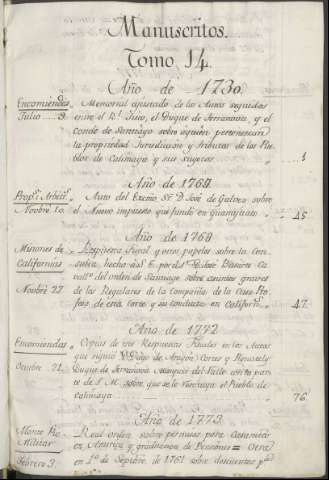 Manuscritos.
Tomo 14.
Año de 1730.
Encomiendas Memorial ajustado de los Autos seguidos
Julio 9. entre el Rl. Fisco, el Duque de Terranova, y el
Conde de Santiago sobre a quien pertenecian
la propiedad Jurisdiccion y tributos de los Pue-
blos de Calimaya y sus sugetos 1
Año de 1764
Auto del Excmo Sr. Dn. José de Galvez sobre
Novbre. 10. el Nuevo impuesto que fundó en Guanajuato 45
Año de 1768
Misiones de Respuesta Fiscal y otros papeles sobre la Con-
Californias sulta hecha á S. E. por el
del orden de Santiago sobre asuntos graves
Novbre 27 de los Regulares de la Compañia de la Casa Pro-
fesa de esta Corte y su conducta en Californs. 47.
Año de 1772
Encomiendas Copias de tres Respuestas Fiscales en los Autos
que siguió Dn. Diego de Aragon Cortes y
Octubre 21. Duque de Terranova Marques del Valle con la par-
te de S. M. sobre que se le restituya el Pueblo de
Calimaya 76.
Año de 1773
Monte Pio Real orden sobre permisos para Casamientos
Militar en America y graduacion de Pensiones = Otra
Febrero 3. en 1º de Septbre. de 1761 sobre descuentos pa.